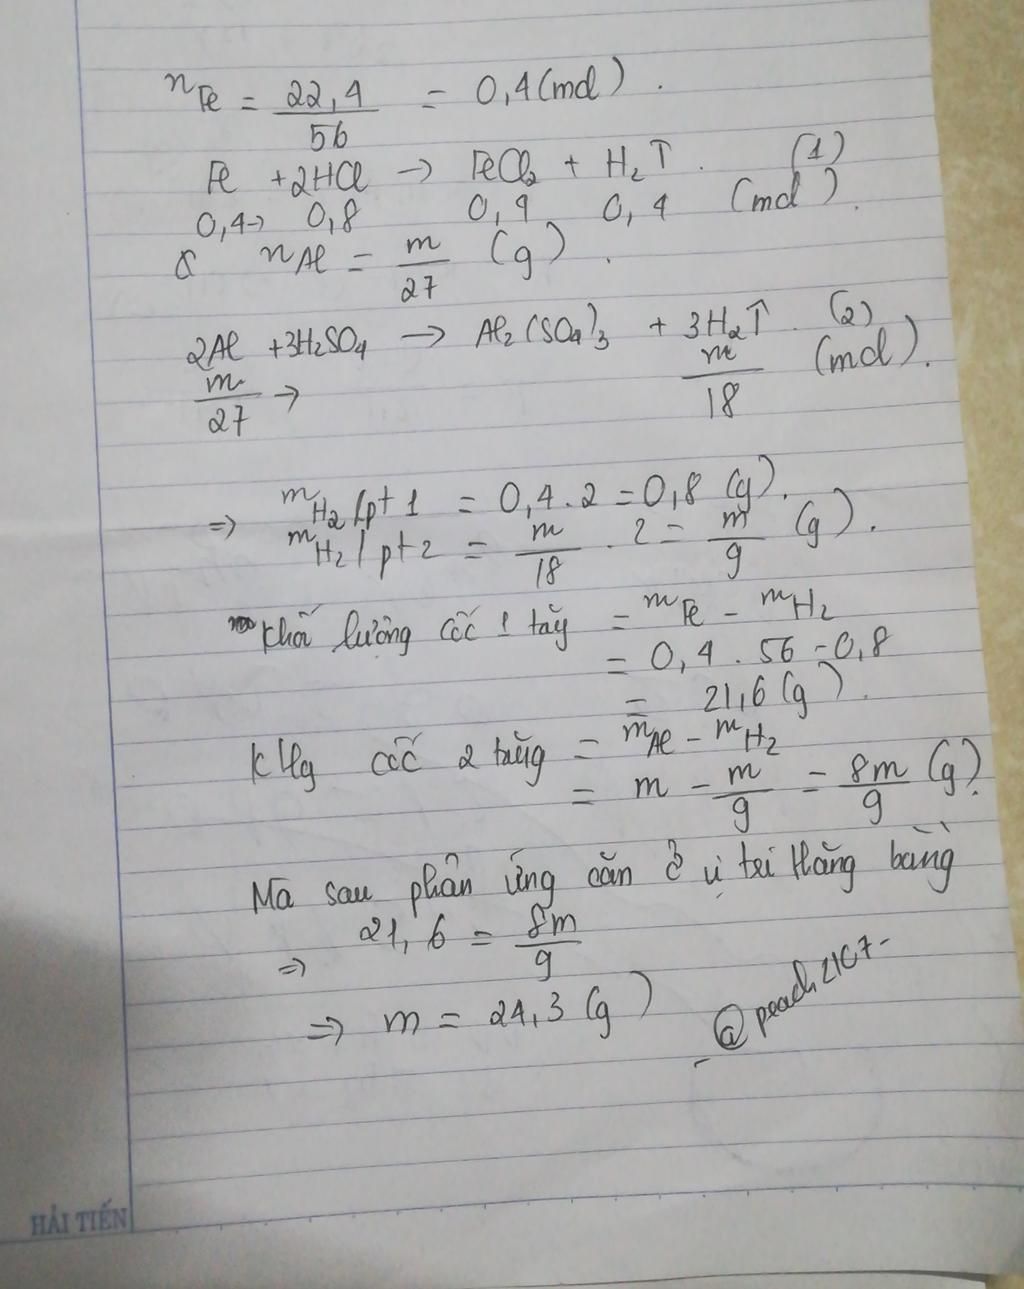 nFe = 22,4/56 = 0,4 (mol).
Fe + 2HCl → FeCl₂ + H₂↑. (1)
0,4→ 0,8 0,4 0,4 (mol).
nAl = m/27 (g).
2Al + 3H₂SO₄ → Al₂(SO₄)₃ + 3H₂↑. (2)
m/27 → m/18 (mol).
⇒ mH₂/pt 1 = 0,4 . 2 = 0,8 (g).
mH₂/pt 2 = m/18 . 2 = m/9 (g).
khối lượng cốc 1 tăng = mFe - mH₂
= 0,4 . 56 - 0,8
= 21,6 (g).
klg cốc 2 tăng = mAl - mH₂
= m - m/9 = 8m/9 (g).
Mà sau phản ứng cân ở vị trí thăng bằng
⇒ 21,6 = 8m/9
⇒ m = 24,3 (g)
HẢI TIẾN